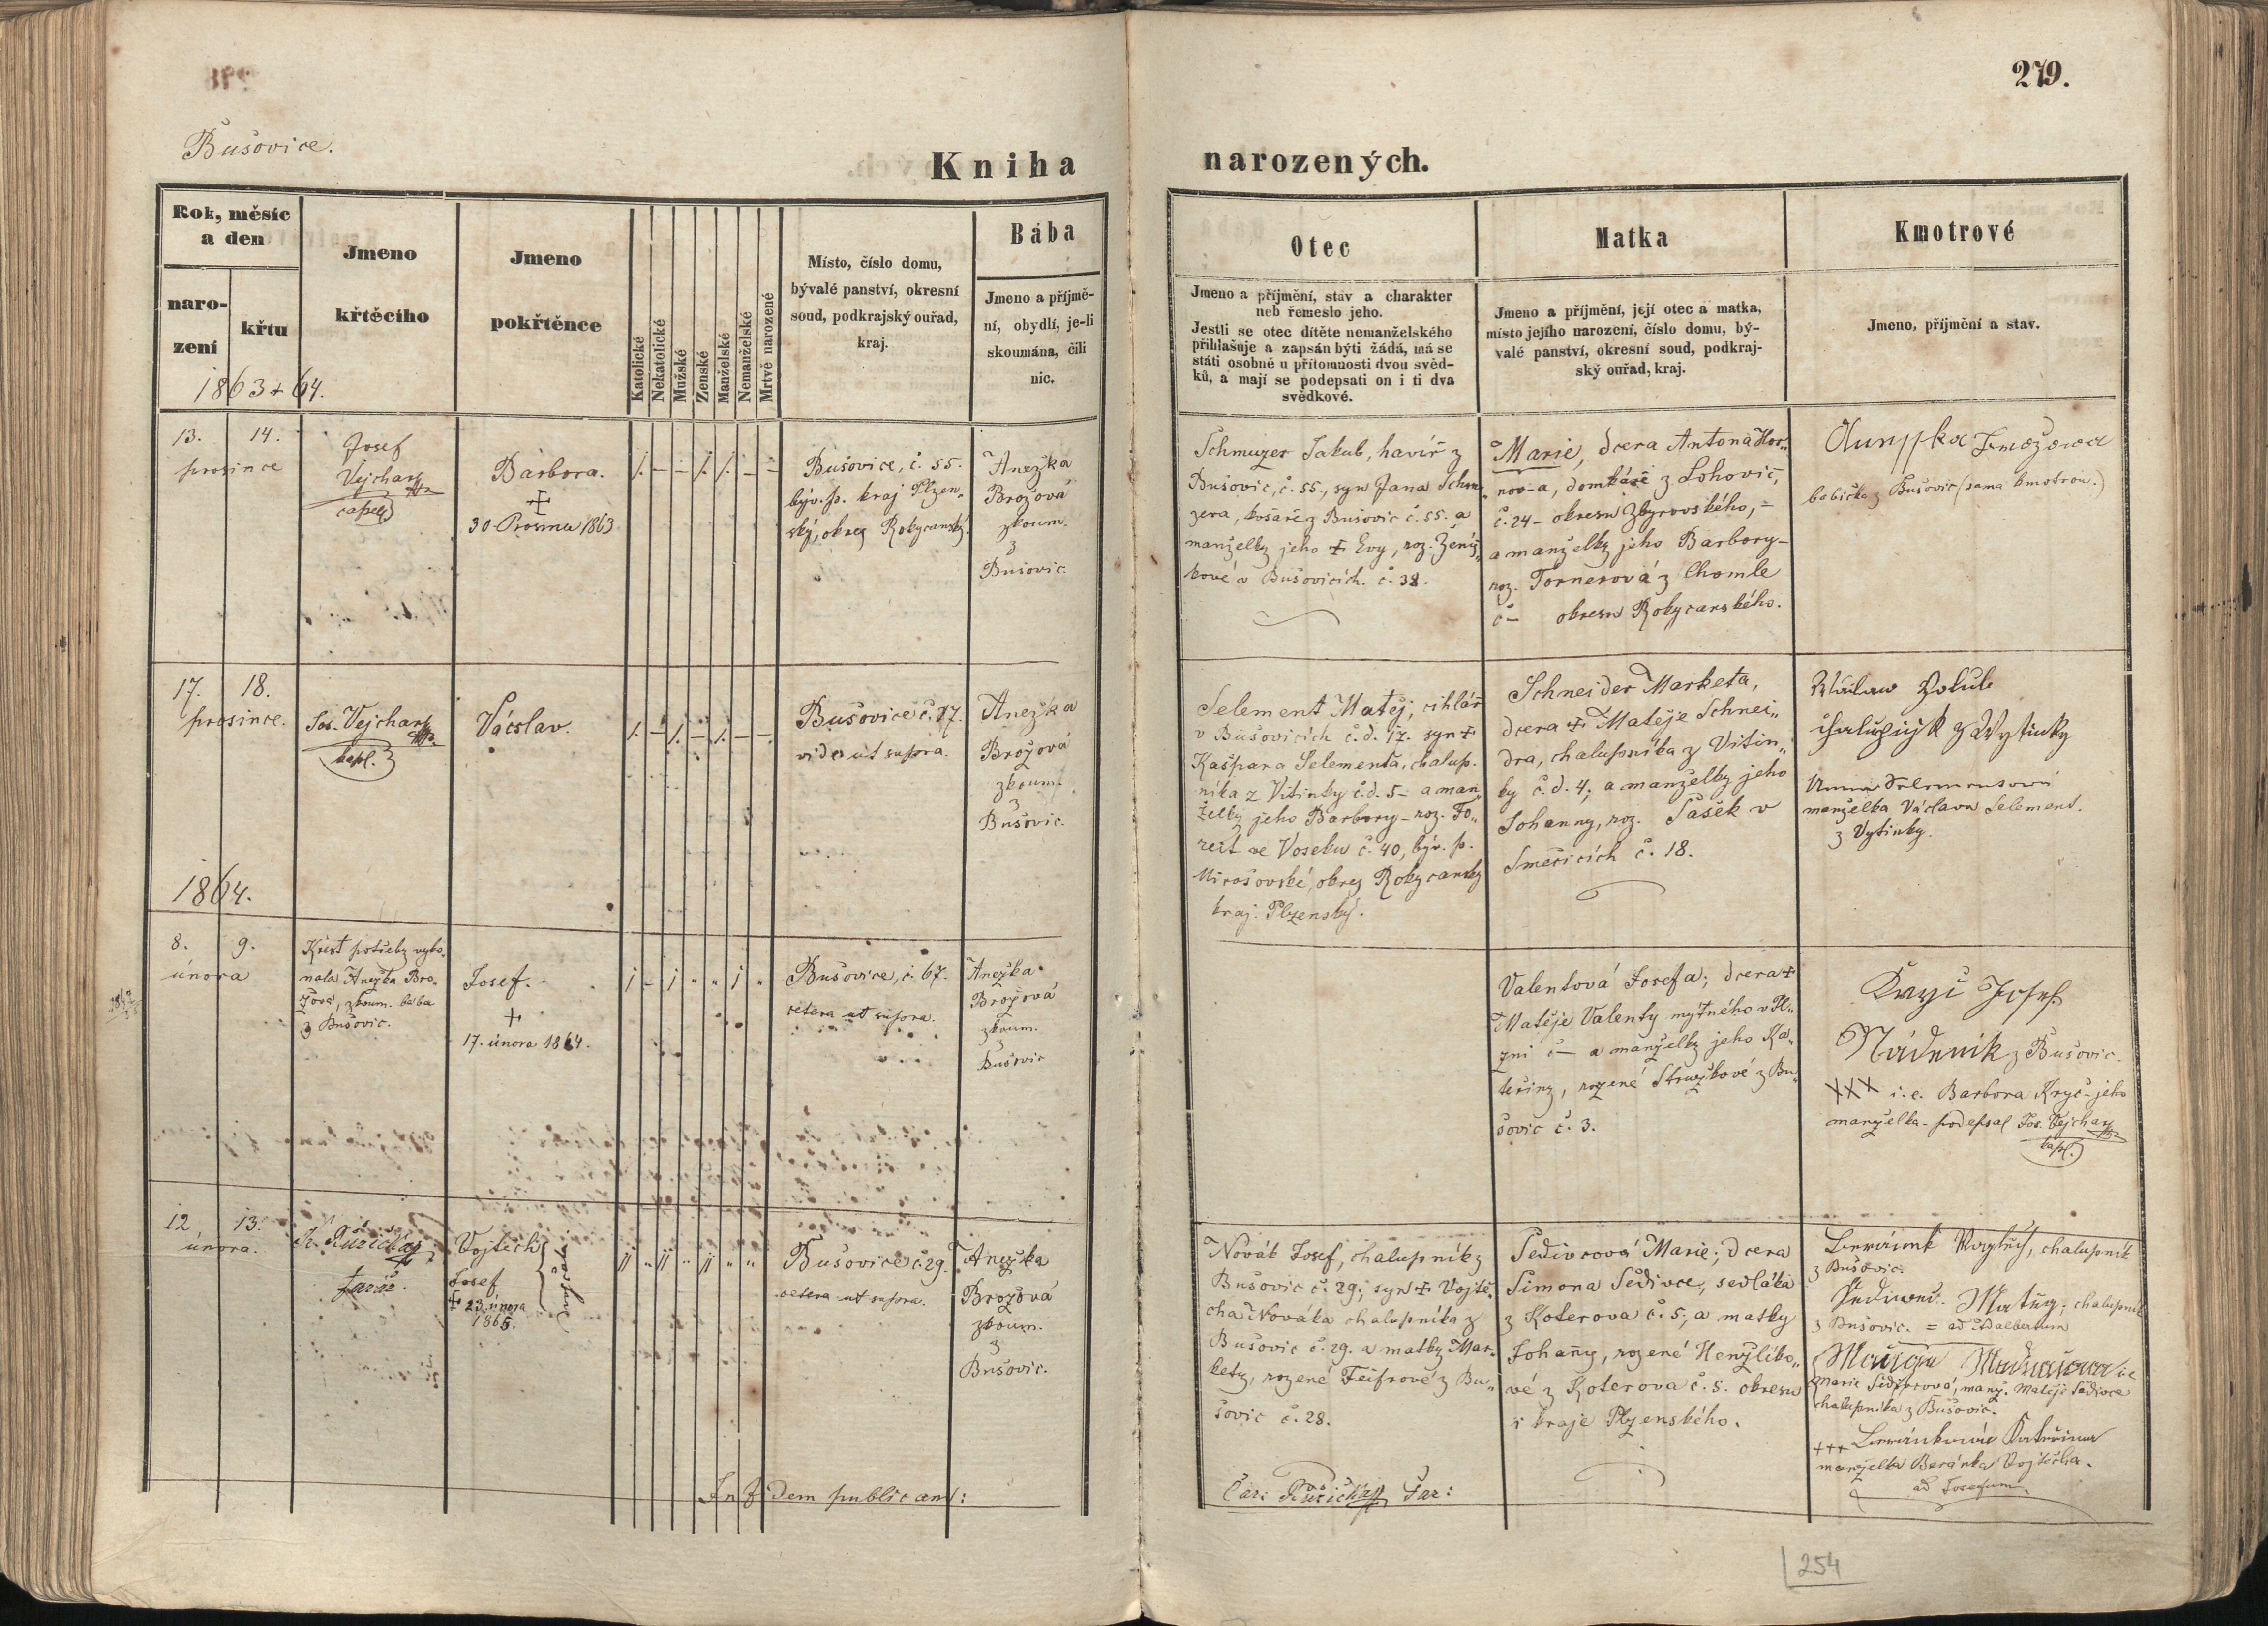 279.
Bušovice.
Kniha narozených.
Rok, měsíc
a den
naro-
zení
křtu
1863 + 64.
Jmeno
křtěcího
Jmeno
pokřtěnce
Katolické
Nekatolické
Mužské
Ženské
Manželské
Nemanželské
Mrtvě narozené
Místo, číslo domu,
bývalé panství, okresní
soud, podkrajský ouřad,
kraj.
Bába
Jmeno a příjmě-
ní, obydlí, je-li
skoumána, čili
nic.
Otec
Jmeno a příjmění, stav a charakter
neb řemeslo jeho.
Jestli se otec dítěte nemanželského
přihlašuje a zapsán býti žádá, má se
státi osobně u přítomnosti dvou svěd-
ků, a mají se podepsati on i ti dva
svědkové.
Matka
Jmeno a příjmění, její otec a matka,
místo jejího narození, číslo domu, bý-
valé panství, okresní soud, podkraj-
ský ouřad, kraj.
Kmotrové
Jmeno, příjmění a stav.
13. 14.
prosince
Josef
Vejchar
Barbora.
+
30 Prosince 1863
Bušovice, č. 55.
býv. p. kraj Plzen„
ský, okres Rokycanský.
Anežka
Brožová
zkoum.
z
Bušovic.
Schmuzer Jakub, havíř z
Bušovic, č. 55., syn Jana Schmu„
zera, košaře z Bušovic č. 55. a
manželky jeho + Evy, roz. Ženíš„
kové v Bušovicích č. 38.
Marie, dcera Antona Hor„
nov-a, domkáře z Lohovic,
č. 24 – okresu Zbyrovského, –
a manželky jeho Barbory –
roz. Tornerová z Chomle
č – okresu Rokycanského.
babička z Bušovic (sama kmotrou.)
17. 18.
prosince.
Jos. Vejchar
kapl.
Vácslav.
Bušovice č. 17.
vide ut supra.
Anežka
Brožová
zkoum.
z
Bušovic.
Selement Matěj, cihlář
v Bušovicích č. d. 17. syn +
Kašpara Selementa, chalup.
níka z Vitinky č. d. 5 – a man„
želky jeho Barbory – roz. Fo„
reit ve Voseku č. 40, býv. p.
Mirošovské, okres Rokycanský
kraj. Plzenský.
Schneider Marketa,
dcera + Matěje Schnei„
dra, chalupníka z Vitin„
ky č. d. 4; a manželky jeho
Johanny, roz. Sašek v
Smečicích č. 18.
Václaw Holub
chalupnjk z Wytinky
manželka Václava Selement.
z Vytinky.
1864.
8. 9.
února
Křest potřeby vyko„
nala Anežka Bro„
žová, zkoum. bába
z Bušovic.
Josef.
+
17. února 1864.
Bušovice, č. 67.
cetera ut supra.
Anežka
Brožová
zkoum.
z
Bušovic
Valentová Josefa; dcera +
Matěje Valenty mýtného v Pl„
zni č – a manželky jeho Ka„
teřiny, rozené Stružkové z Bu„
šovic č. 3.
Kryč Josef
Nádeník z Bušovic.
XXX i. e. Barbora Kryč – jeho
manželka – podepsal Jos. Vejchar
kapl.
12 13.
února.
Růžička
farář.
Vojtěch
Josef
+ 23. února
1865.
Bušovice č. 29.
cetera ut supra.
Anežka
Brožová
zkoum.
z
Bušovic.
Novák Josef, chalupník z
Bušovic č. 29; syn + Vojtě„
cha Nováka chalupníka z
Bušovic č. 29. a matky Mar„
kety, rozené Feifrové z Bu„
šovic č. 28.
Šedivcová Marie; dcera
Šimona Šedivce, sedláka
z Koterova č. 5; a matky
Johany, rozené Henžlíko„
vé z Koterova č. 5. okresu
i kraje Plzenského.
Vojtěch, chalupník
z Bušovic.
Matěj; chalupník
z Bušovic. = ad Adalbertum
Marie Šedivcová, manž. Matěje Šedivce
chalupníka z Bušovic.
+++ Kateřina
manželka Beránka Vojtěcha.
ad Josefum.
In fidem publicam:
Růžička Far:
254